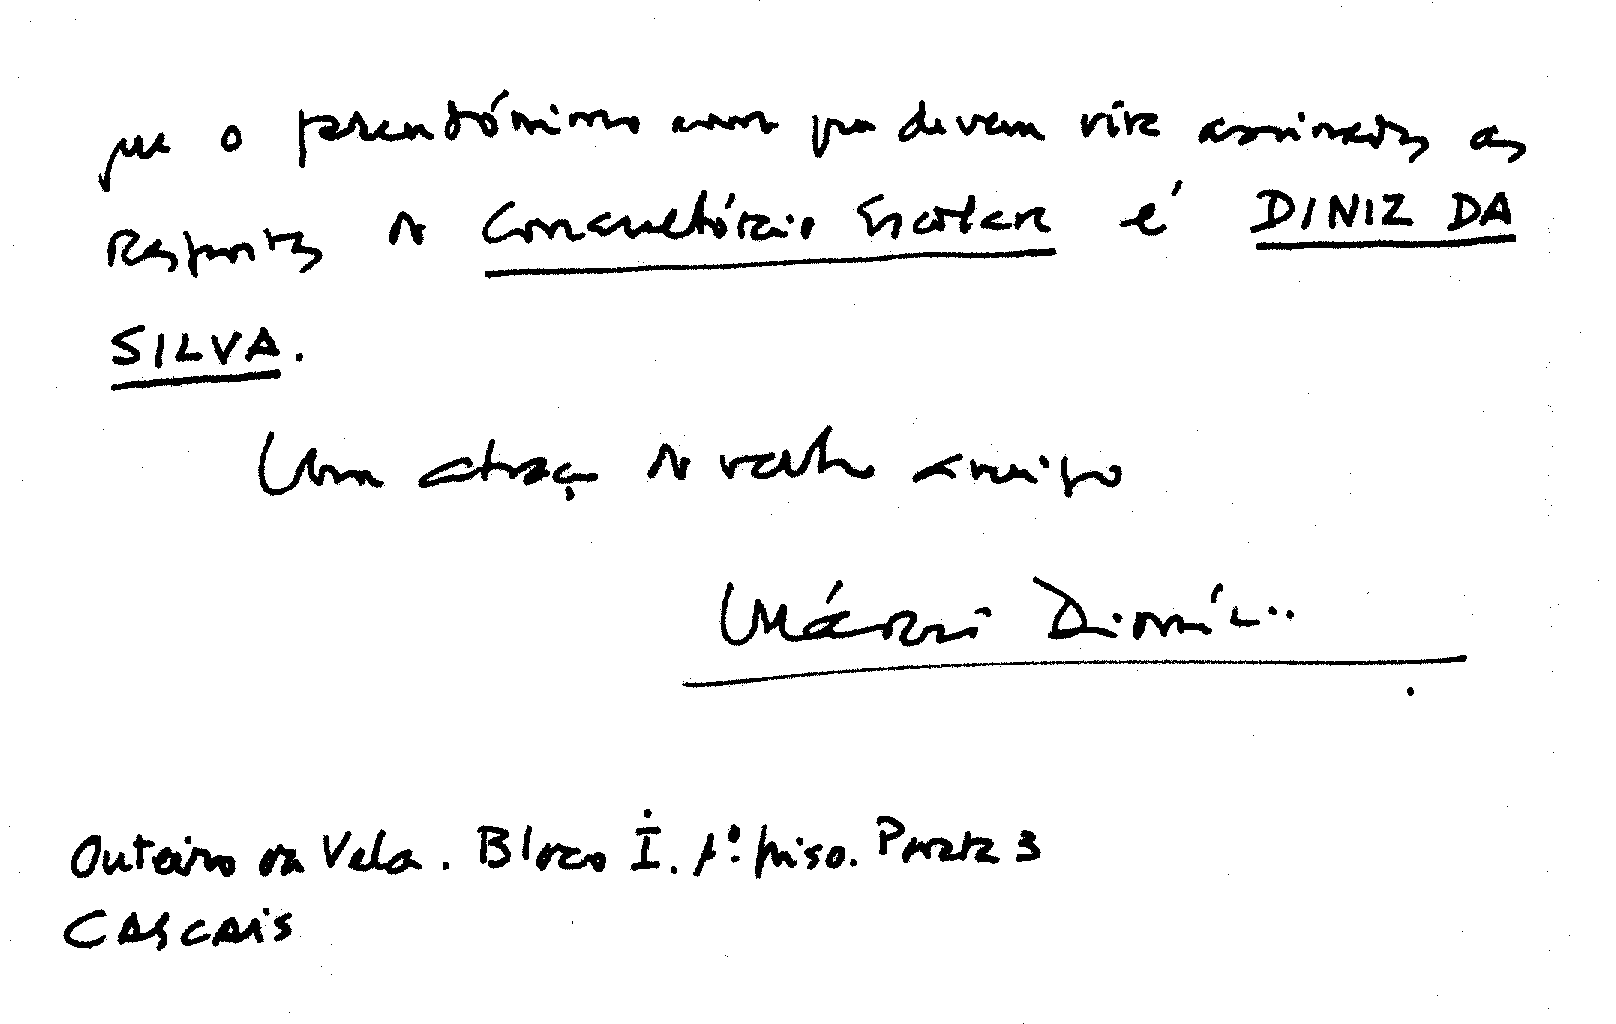 que o pseudónimo com que devem vir assinadas as
respostas do Consultório Escolar é DINIZ DA
SILVA.
Um abraço do velho amigo
Mário Dionísio
Outeiro da Vela. Bloco I. 1º piso. Porta 3
CASCAIS